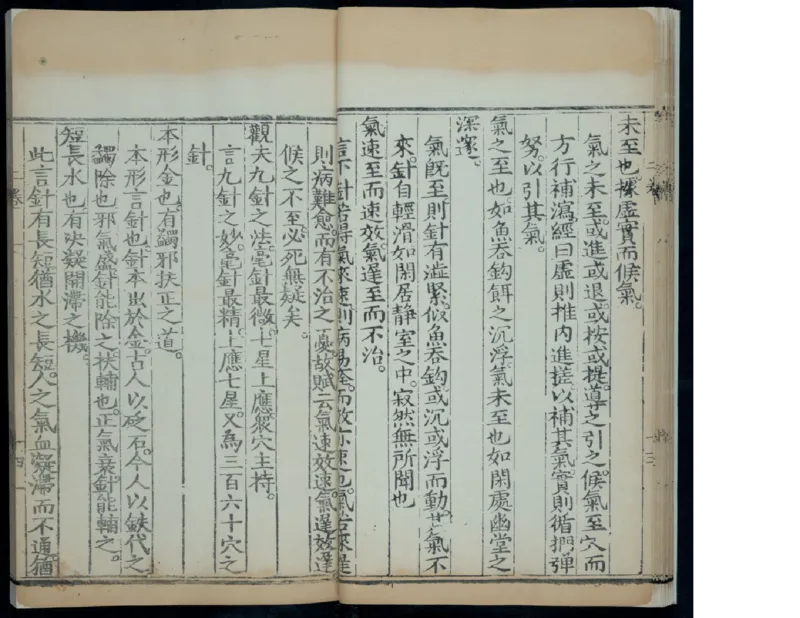 未至也據虛實而候氣。
氣之未至。或進或退。或按或提。導之引之。候氣至穴而
方行補瀉。經曰虛則推內進搓。以補其氣。實則循捫彈
努。以引其氣。
氣之至也。如魚吞鈎餌之沉浮。氣未至也。如閑處幽堂之
深邃。
氣旣至則針有澁緊。似魚吞鈎。或沉或浮而動。其氣不
來。針自輕滑。如閑居靜室之中。寂然無所聞也
氣速至而速效。氣遲至而不治。
言下針若得氣來速。則病易痊。而效亦速也。氣若來遲
則病難愈。而有不治之憂。故賦云氣速效速。氣遲效遲
候之不至。必死無疑矣。
觀夫九針之法。毫針最微。七星上應。衆穴主持。
言九針之妙。毫針最精。上應七星。又爲三百六十穴之
針。
本形金也。有蠲邪扶正之道。
本形言針也。針本出於金。古人以砭石。今人以鉄代之
蠲除也。邪氣盛針能除之。扶輔也。正氣衰針能輔之。
短長水也。有決凝開滯之機。
此言針有長短。猶水之長短。人之氣血凝滯而不通。猶
二卷
十三
十四